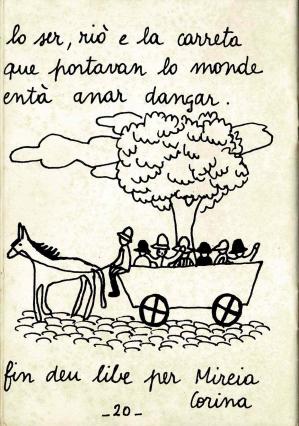 lo ser, riò e la carreta
que portavan lo monde
entà anar dançar.
fin deu libe per Mireia
Corina
-20-